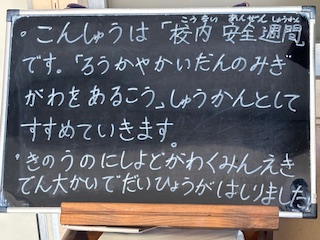 こうない あんぜん しゅうかん
・こんしゅうは「校内 安全週間」
です。「ろうかやかいだんのみぎ
がわをあるこう」しゅうかんとして
すすめていきます。
・きのうのにしよどがわくみんえき
でん大かいでだいひょうがはしりました。